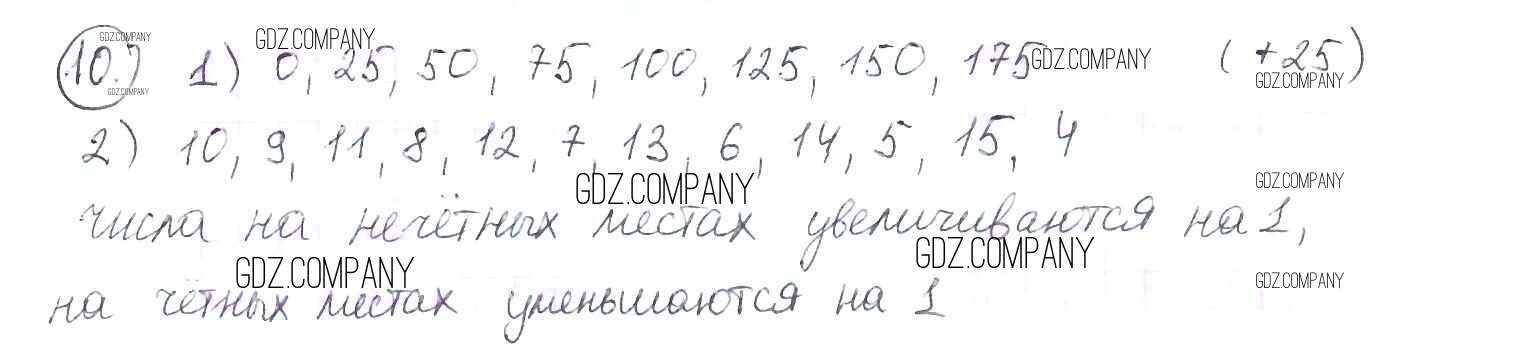 10.) 1) 0, 25, 50, 75, 100, 125, 150, 175 (+25)
2) 10, 9, 11, 8, 12, 7, 13, 6, 14, 5, 15, 4
числа на нечётных местах увеличиваются на 1,
на чётных местах уменьшаются на 1
GDZ.COMPANY
GDZ.COMPANY
GDZ.COMPANY
GDZ.COMPANY
GDZ.COMPANY
GDZ.COMPANY
GDZ.COMPANY
GDZ.COMPANY
GDZ.COMPANY
GDZ.COMPANY